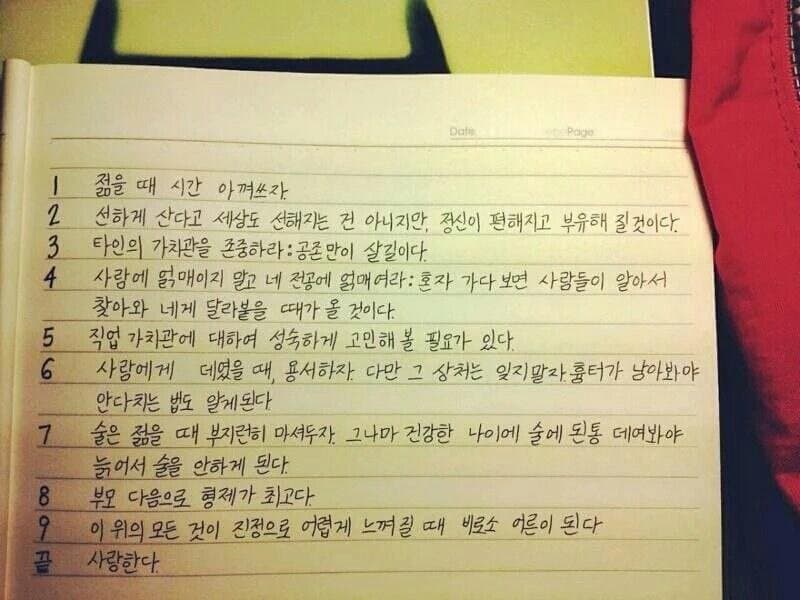 Date Page
1 젊을 때 시간 아껴쓰자.
2 선하게 산다고 세상도 선해지는 건 아니지만, 정신이 편해지고 부유해 질것이다.
3 타인의 가치관을 존중하라:공존만이 살길이다.
4 사람에 얽매이지 말고 네 전공에 얽매여라:혼자 가다보면 사람들이 알아서
찾아와 네게 달라붙을 때가 올 것이다.
5 직업 가치관에 대하여 성숙하게 고민해 볼 필요가 있다.
6 사람에게 데였을 때, 용서하자. 다만 그 상처는 잊지말자. 흉터가 남아봐야
안다치는 법도 알게된다.
7 술은 젊을 때 부지런히 마셔두자. 그나마 건강한 나이에 술에 된통 데여봐야
늙어서 술을 안하게 된다.
8 부모 다음으로 형제가 최고다.
9 이 위의 모든 것이 진정으로 어렵게 느껴질 때 비로소 어른이 된다
끝 사랑한다.